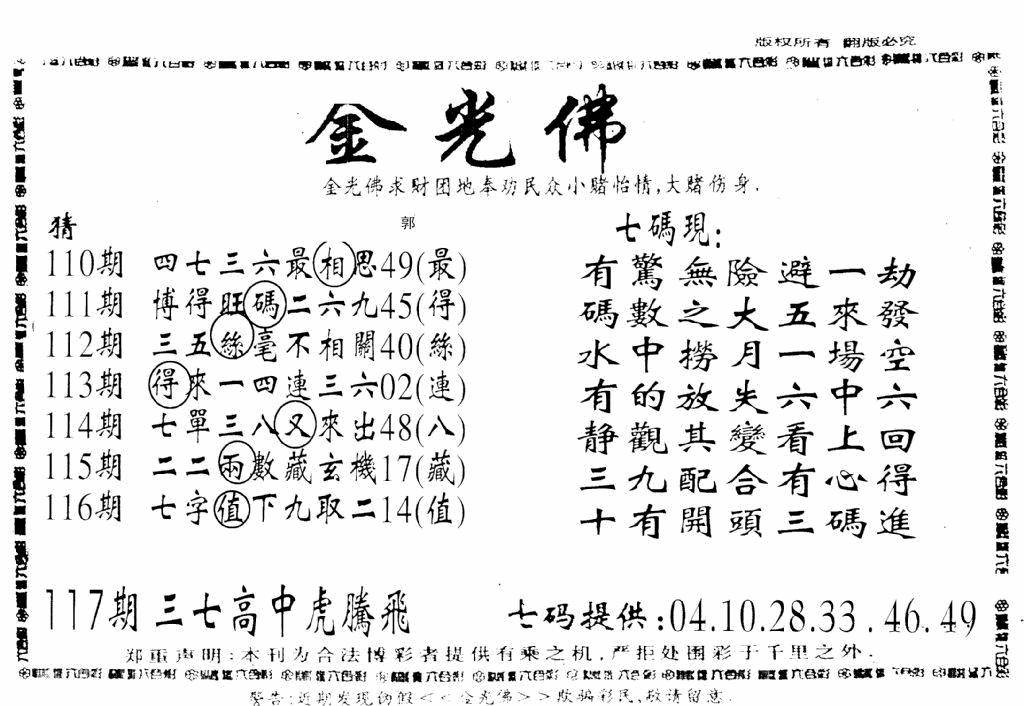 版权所有 翻版必究
金光佛
金光佛求财团地奉劝民众小赌怡情,大赌伤身.
猜
郭
110期 四七三六最相思49(最)
111期 博得旺碼二六九45(得)
112期 三五絲毫不相關40(絲)
113期 得來一四連三六02(連)
114期 七單三八又來出48(八)
115期 二二兩數藏玄機17(藏)
116期 七字值下九取二14(值)
七碼現:
有驚無險避一劫
碼數之大五來發
水中撈月一場空
有的放失六中六
靜觀其變看上回
三九配合有心得
十有開頭三碼進
117期 三七高中虎騰飛
七码提供:04.10.28.33.46.49
郑重声明:本刊为合法博彩者提供有乘之机,严拒处围彩于千里之外.
警告:近期发现的假<<金光佛>>欺骗彩民,敬请留意.